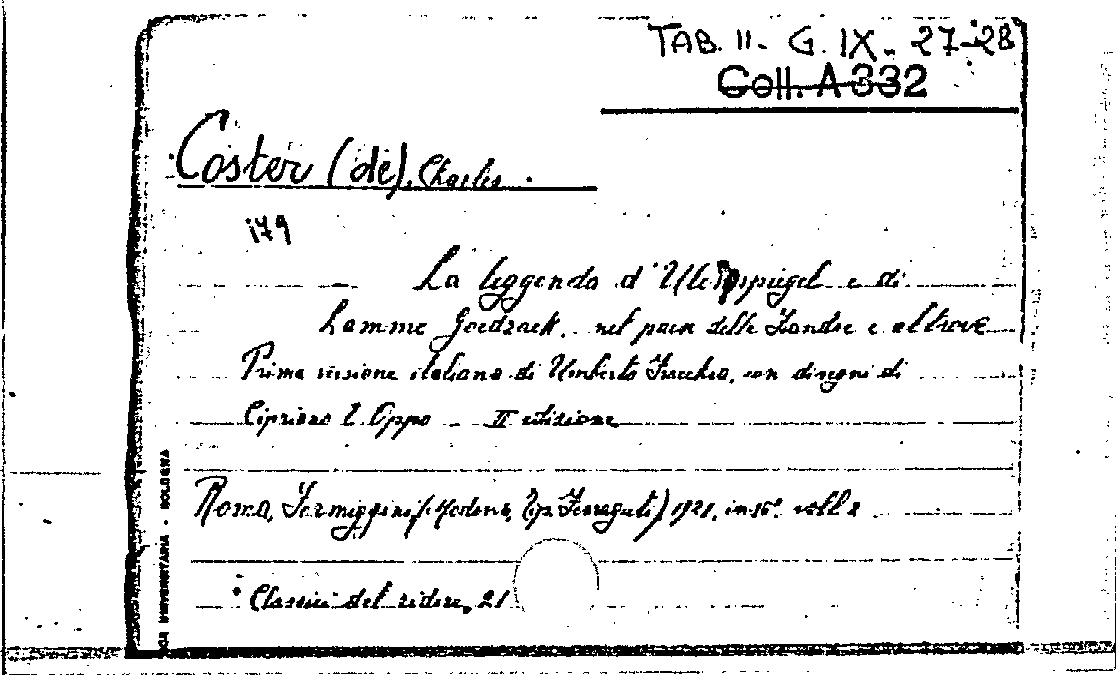 TAB. II - G. IX - 27-28
Coll. A 332
Coster (de), Charles.
179
La leggenda d'Ulenspiegel e di
Lamme Goedzack, nel paese delle Fiandre e altrove
Prima versione italiana di Umberto Fracchia, con disegni di
Cipriano E. Oppo - II edizione
Roma, Formiggini (Modena, Tip. Ferraguti) 1921, in 16° voll. 2
Classici del ridere, 21
UNIVERSITARIA - BOLOGNA